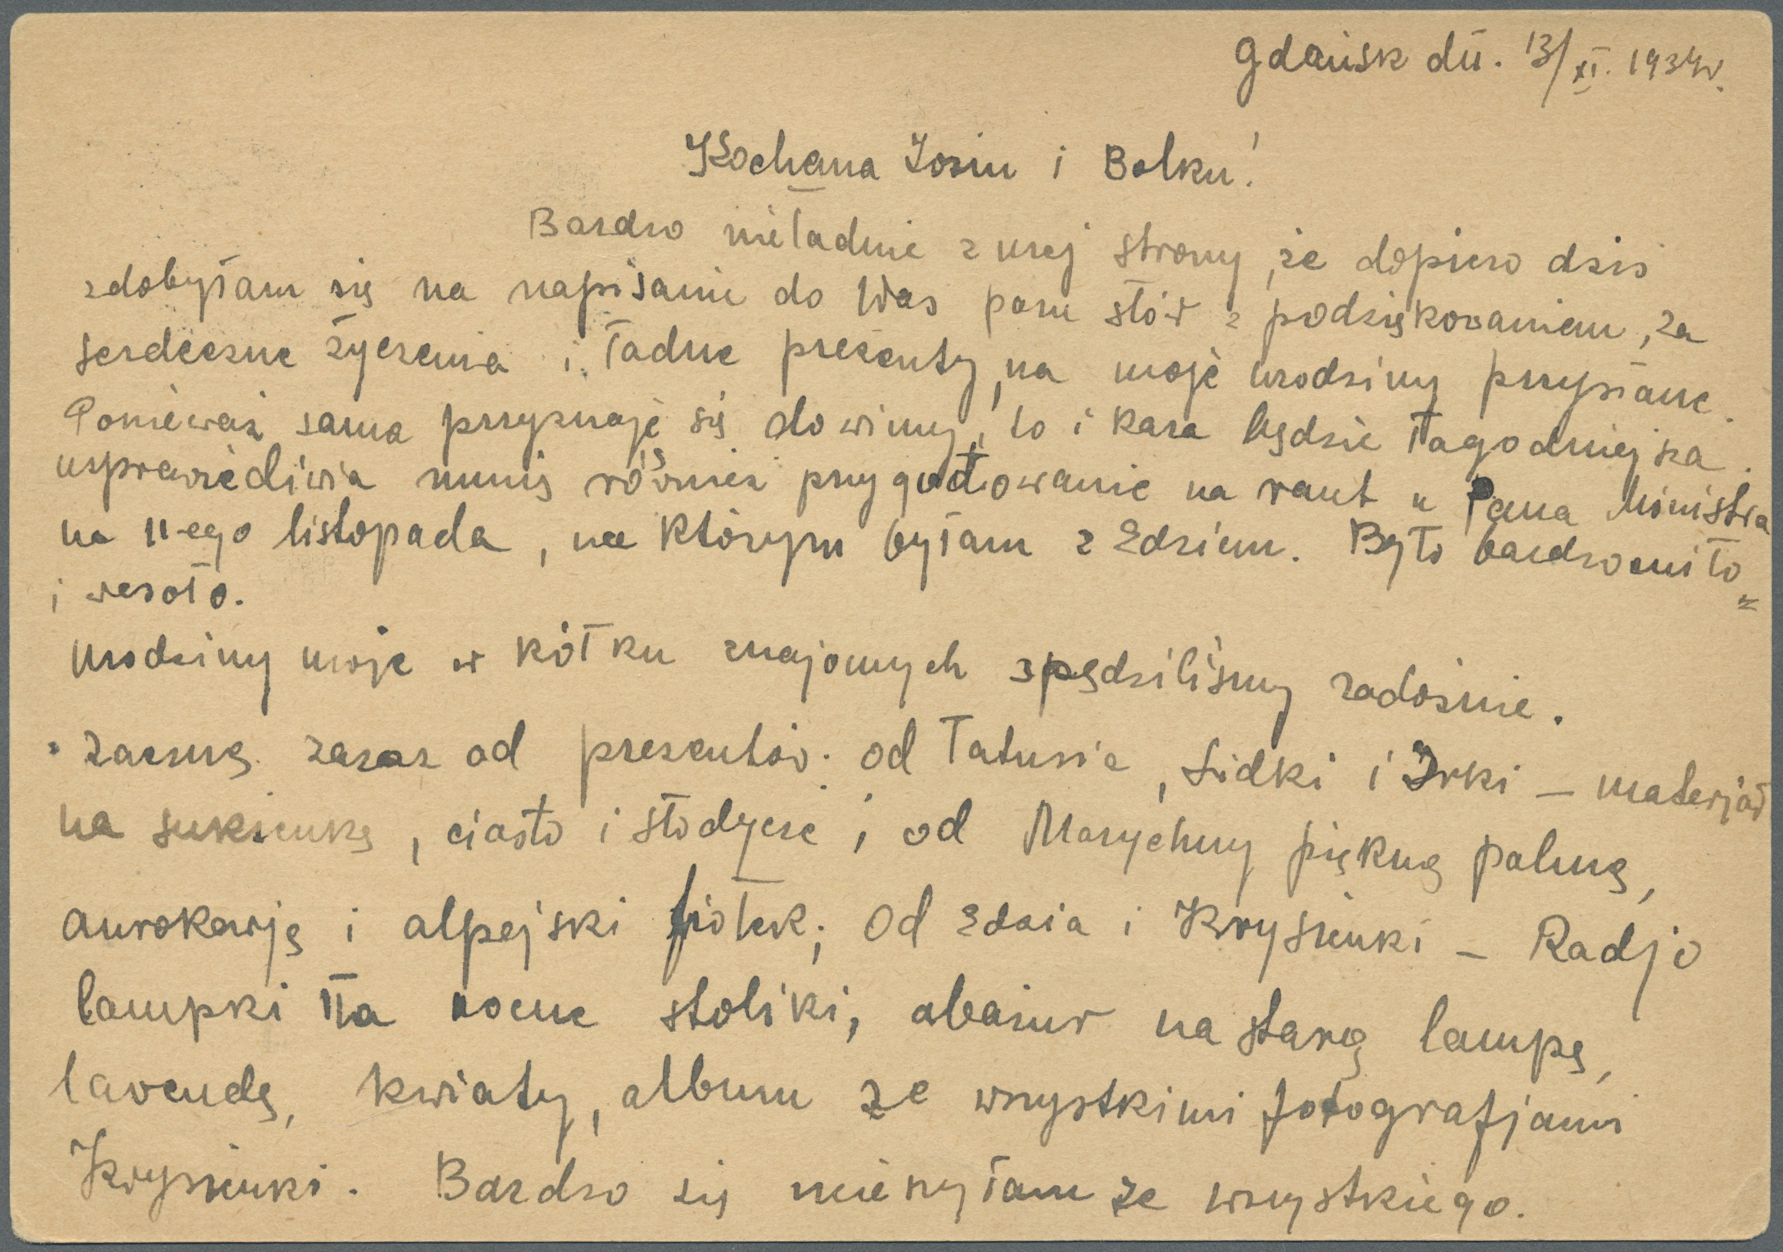 Gdańsk dń. 13/XI. 1934r.
Kochana Zosiu i Bolku!
Bardzo nieładnie z mej strony, że dopiero dziś
zdobyłam się na napisanie do Was paru słów z podziękowaniem, za
serdeczne życzenia i ładne prezenty, na moje urodziny przysłane.
Ponieważ sama przyznaję się do winy, to i kara będzie łagodniejsza.
usprawiedliwia mnię również przygotowanie na raut u Pana Ministra
na 11-ego listopada, na którym byłam z Edziem. Było bardzo miło =
i wesoło.
Urodziny moje w kółku znajomych spędziliśmy radośnie.
Zacznę zaraz od prezentów. od Tatusia, Lidki i Irki – materjał
na sukienkę, ciasto i słodycze; od Marychny piękną palmę,
aurokarję i alpejski fiołek; Od Edzia i Krysieńki – Radjo
lampki na nocne stoliki, abażur na starą lampę,
lavendę, kwiaty, album ze wszystkimi fotografjami
Krysieńki. Bardzo się ucieszyłam ze wszystkiego.